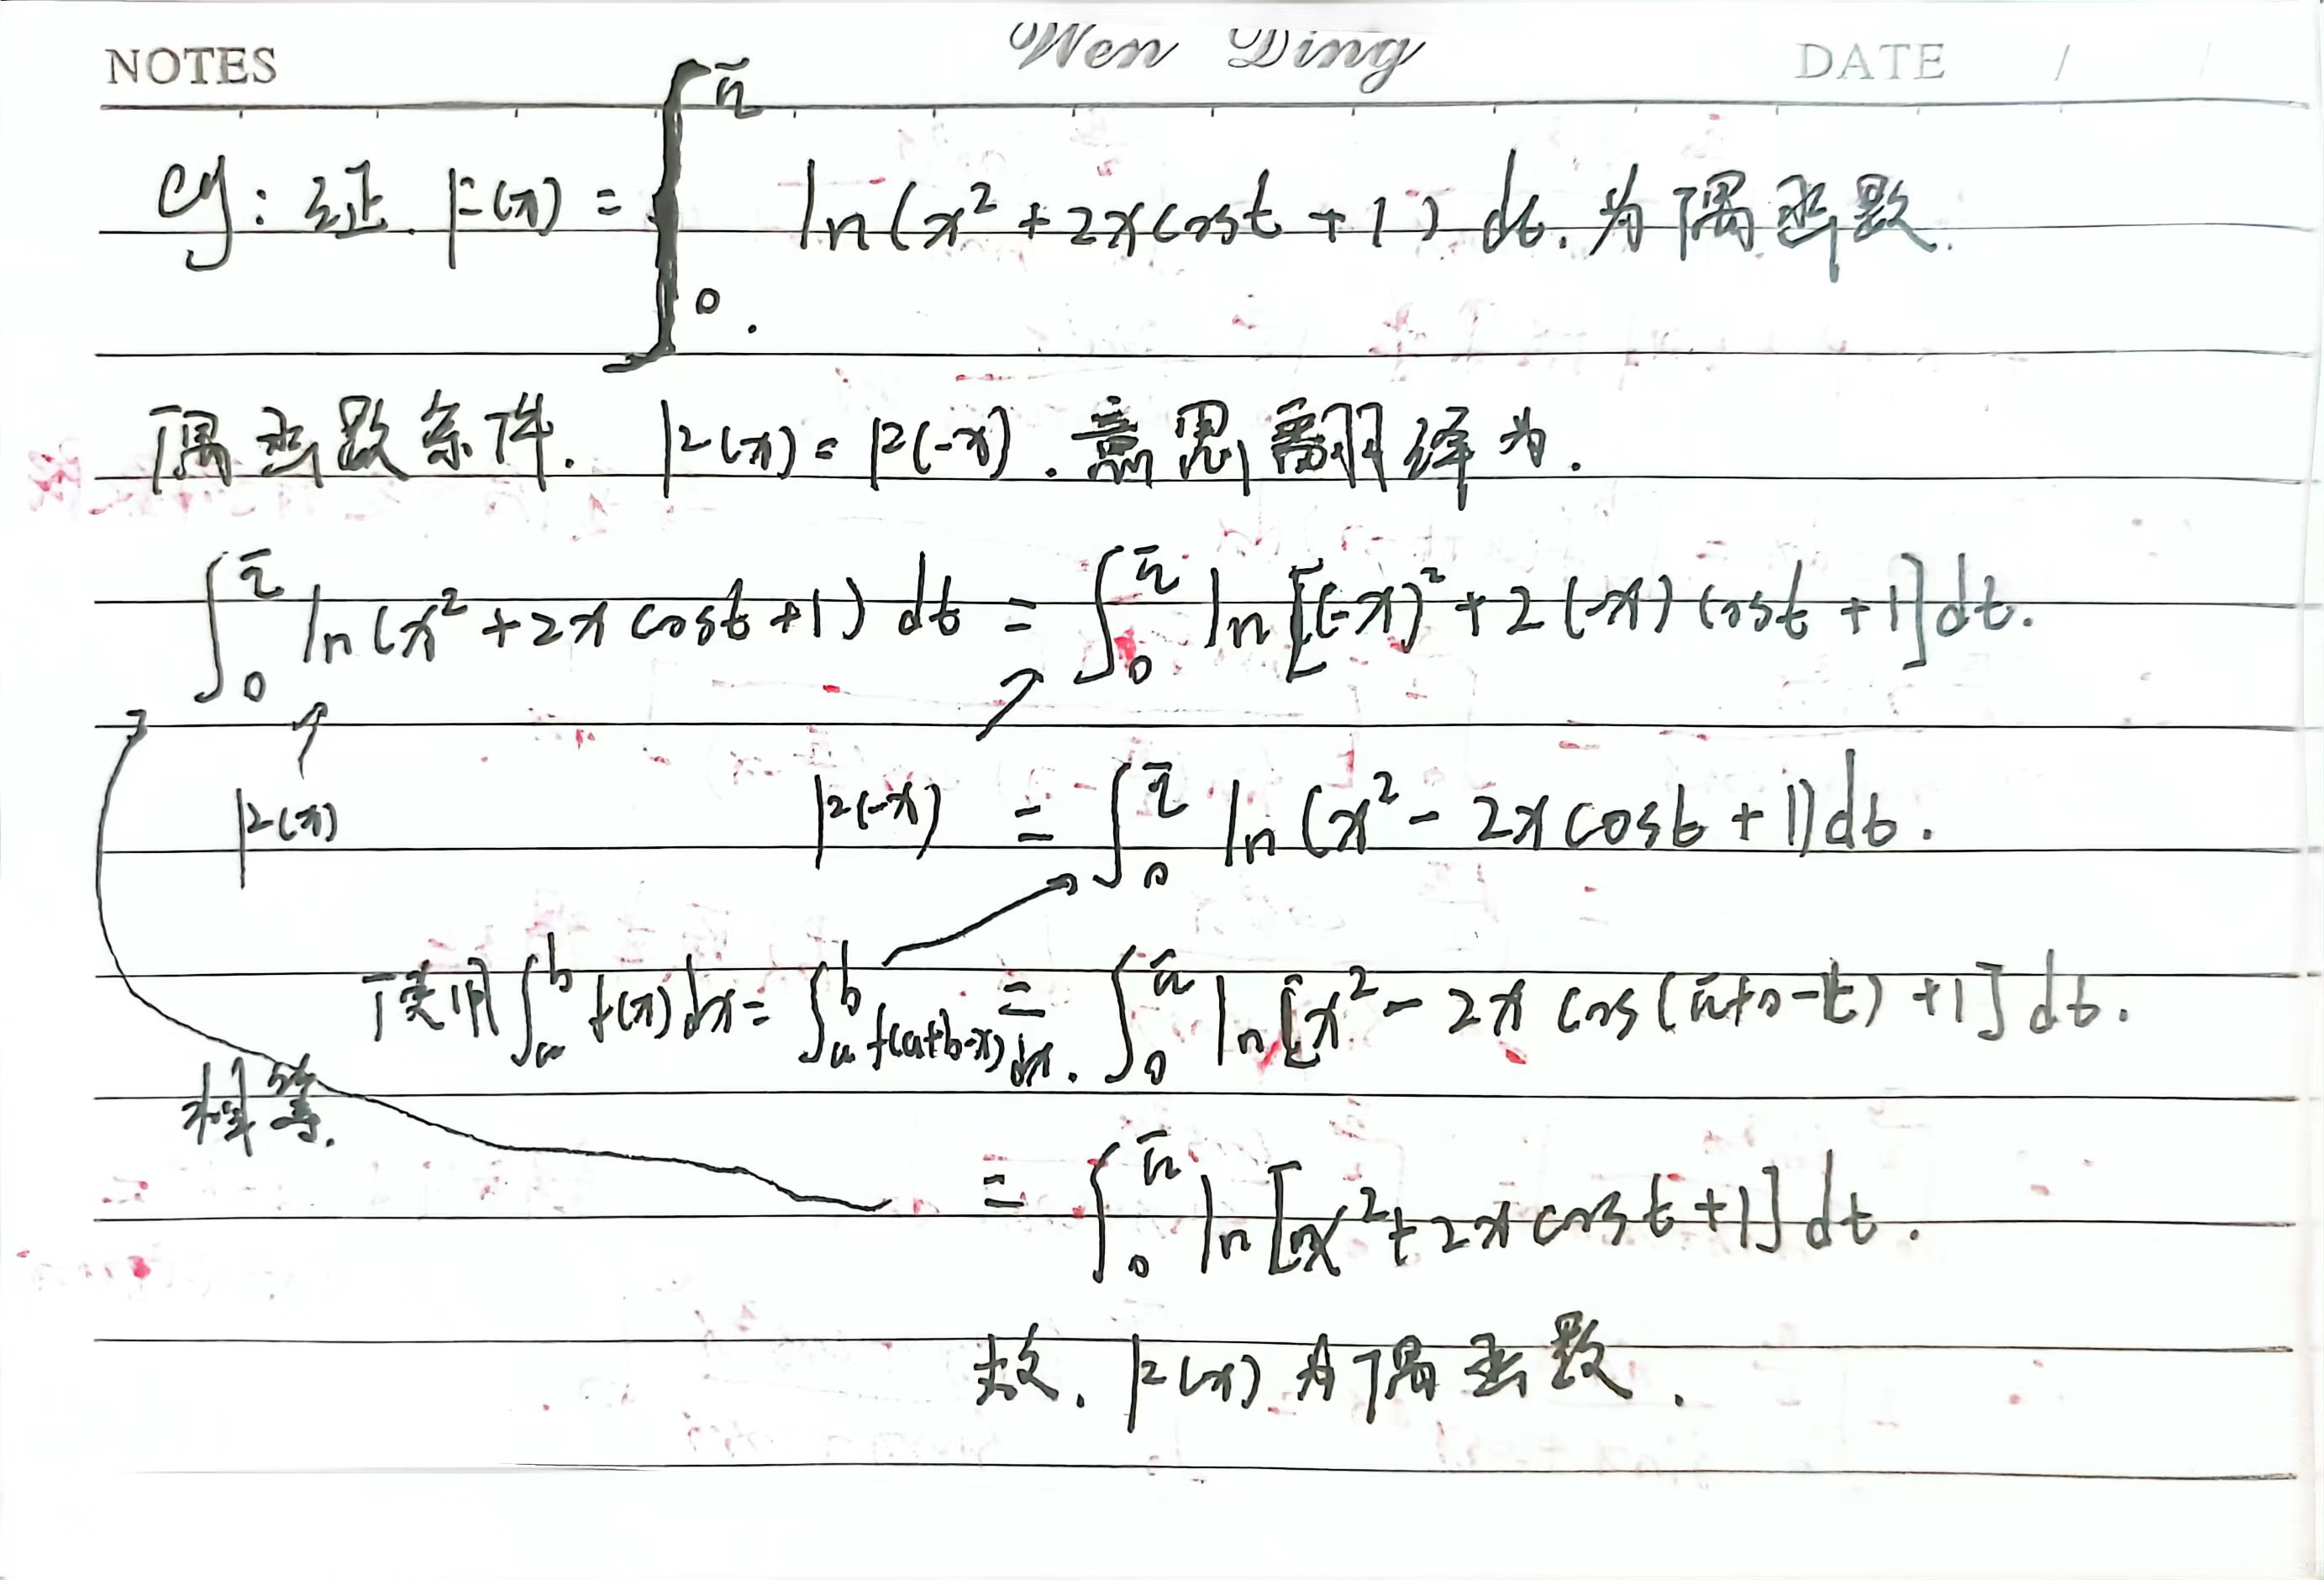 NOTES Wen Ding DATE / /
eg: 证. F(x) = ∫₀^π ln(x² + 2x cost + 1) dt. 为偶函数.
偶函数条件. F(x) = F(-x). 意思翻译为.
∫₀^π ln(x² + 2x cost + 1) dt = ∫₀^π ln[(-x)² + 2(-x) cost + 1] dt.
F(x) F(-x) = ∫₀^π ln(x² - 2x cost + 1) dt.
使用 ∫ₐᵇ f(x) dx = ∫ₐᵇ f(a+b-x) dx. = ∫₀^π ln[x² - 2x cos(π+0-t) + 1] dt.
相等.
= ∫₀^π ln[x² + 2x cost + 1] dt.
故. F(x) 为偶函数.